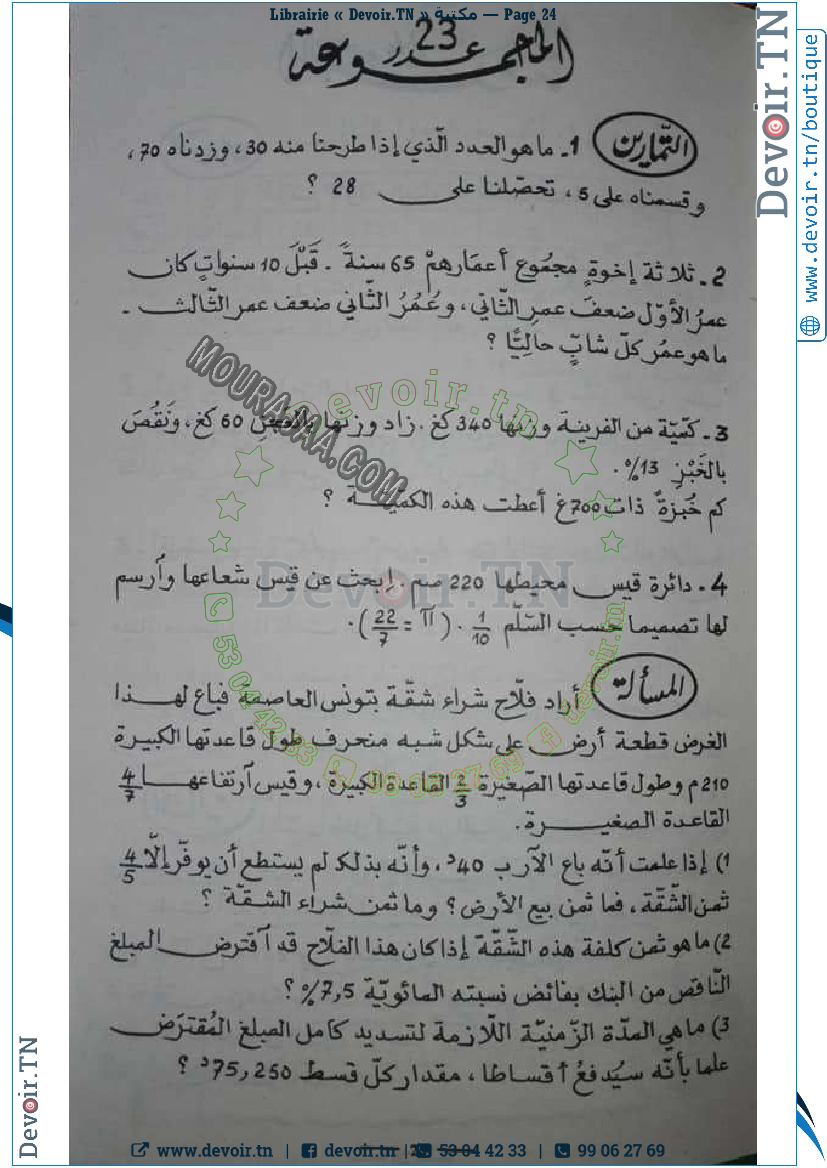 Librairie « Devoir.TN » مكتبة — Page 24
المجموعة عدد 23
التمارين
1- ما هو العدد الّذي إذا طرحنا منه 30، وزدناه 70،
وقسمناه على 5، تحصّلنا على 28 ؟
2- ثلاثة إخوةٍ مجمُوع أعمَارهمْ 65 سنةً. قَبْلَ 10 سنواتٍ كان
عمرُ الأوّل ضعفَ عمرِ الثّاني، وعُمُرُ الثّاني ضعف عمر الثّالث.
ما هو عمُر كلّ شابٍّ حاليًّا ؟
3- كمّيّة من الفرينة وزنُها 340 كغ. زاد وزنُها بالعَجْنِ 60 كغ، ونَقُصَ
بالخَبْزِ 13%.
كم خُبزةً ذات 700غ أعطت هذه الكمّيّة ؟
4- دائرة قيس محيطها 220 صم. اِبحث عن قيس شعاعها وأرسم
لها تصميما حسب السّلّم 1/10. (π = 22/7).
المسألة
أراد فلّاح شراء شقّة بتونس العاصمة فباع لهذا
الغرض قطعة أرض على شكل شبه منحرف طول قاعدتها الكبيرة
210م وطول قاعدتها الصّغيرة 2/3 القاعدة الكبيرة، وقيس آرتفاعها 4/7
القاعدة الصغيرة.
1) إذا علمت أنّه باع الآر بـ 40د، وأنّه بذلك لم يستطع أن يوفّر إلّا 4/5
ثمن الشّقّة، فما ثمن بيع الأرض؟ وما ثمن شراء الشقّة ؟
2) ما هو ثمن كلفة هذه الشّقّة إذا كان هذا الفلّاح قد آقترض المبلغ
النّاقص من البنك بفائض نسبته المائويّة 7,5% ؟
3) ما هي المدّة الزّمنيّة اللّازمة لتسديد كامل المبلغ المُقترَض
علما بأنّه سيُدفعُ أقساطا، مقدار كلّ قسط 75,250د ؟
MOURAJAA.COM
devoir.tn
Devoir.TN
53 04 42 33
99 06 27 69
devoir.tn
Devoir.TN
www.devoir.tn/boutique
Devoir.TN
www.devoir.tn | devoir.tn | 53 04 42 33 | 99 06 27 69